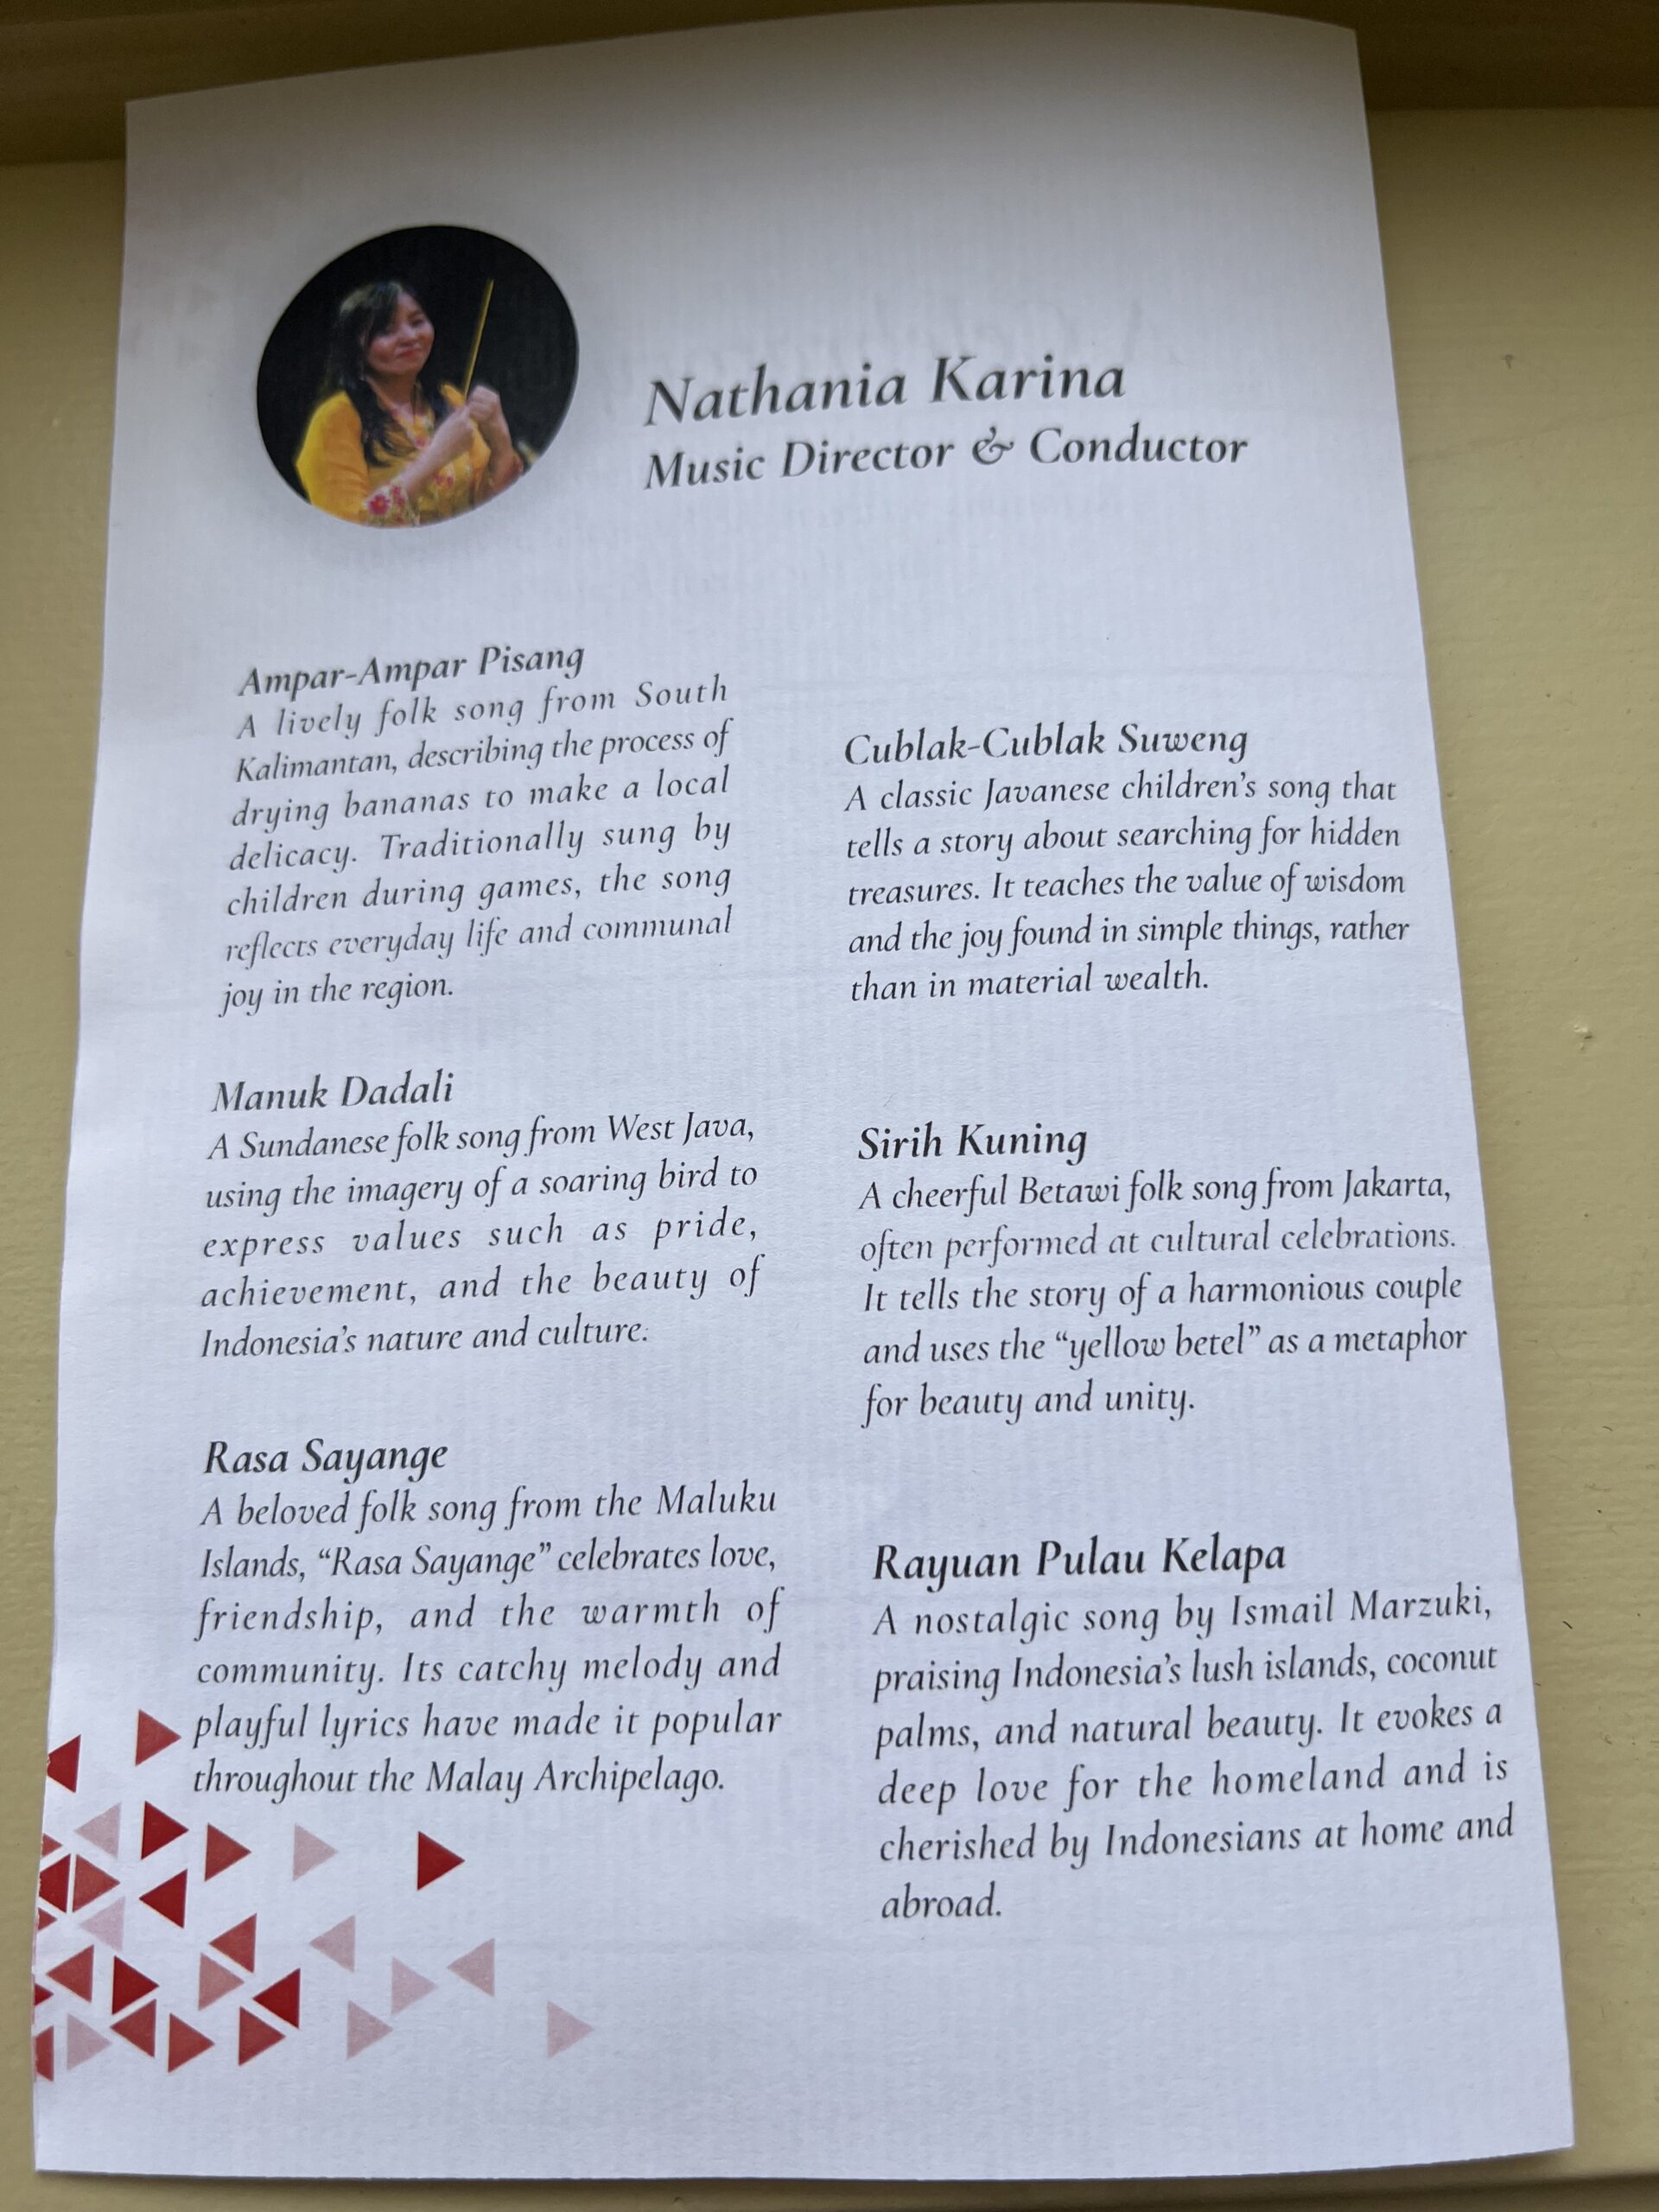 Nathania Karina
Music Director & Conductor
Ampar-Ampar Pisang
A lively folk song from South
Kalimantan, describing the process of
drying bananas to make a local
delicacy. Traditionally sung by
children during games, the song
reflects everyday life and communal
joy in the region.
Manuk Dadali
A Sundanese folk song from West Java,
using the imagery of a soaring bird to
express values such as pride,
achievement, and the beauty of
Indonesia's nature and culture.
Rasa Sayange
A beloved folk song from the Maluku
Islands, “Rasa Sayange” celebrates love,
friendship, and the warmth of
community. Its catchy melody and
playful lyrics have made it popular
throughout the Malay Archipelago.
Cublak-Cublak Suweng
A classic Javanese children’s song that
tells a story about searching for hidden
treasures. It teaches the value of wisdom
and the joy found in simple things, rather
than in material wealth.
Sirih Kuning
A cheerful Betawi folk song from Jakarta,
often performed at cultural celebrations.
It tells the story of a harmonious couple
and uses the “yellow betel” as a metaphor
for beauty and unity.
Rayuan Pulau Kelapa
A nostalgic song by Ismail Marzuki,
praising Indonesia’s lush islands, coconut
palms, and natural beauty. It evokes a
deep love for the homeland and is
cherished by Indonesians at home and
abroad.